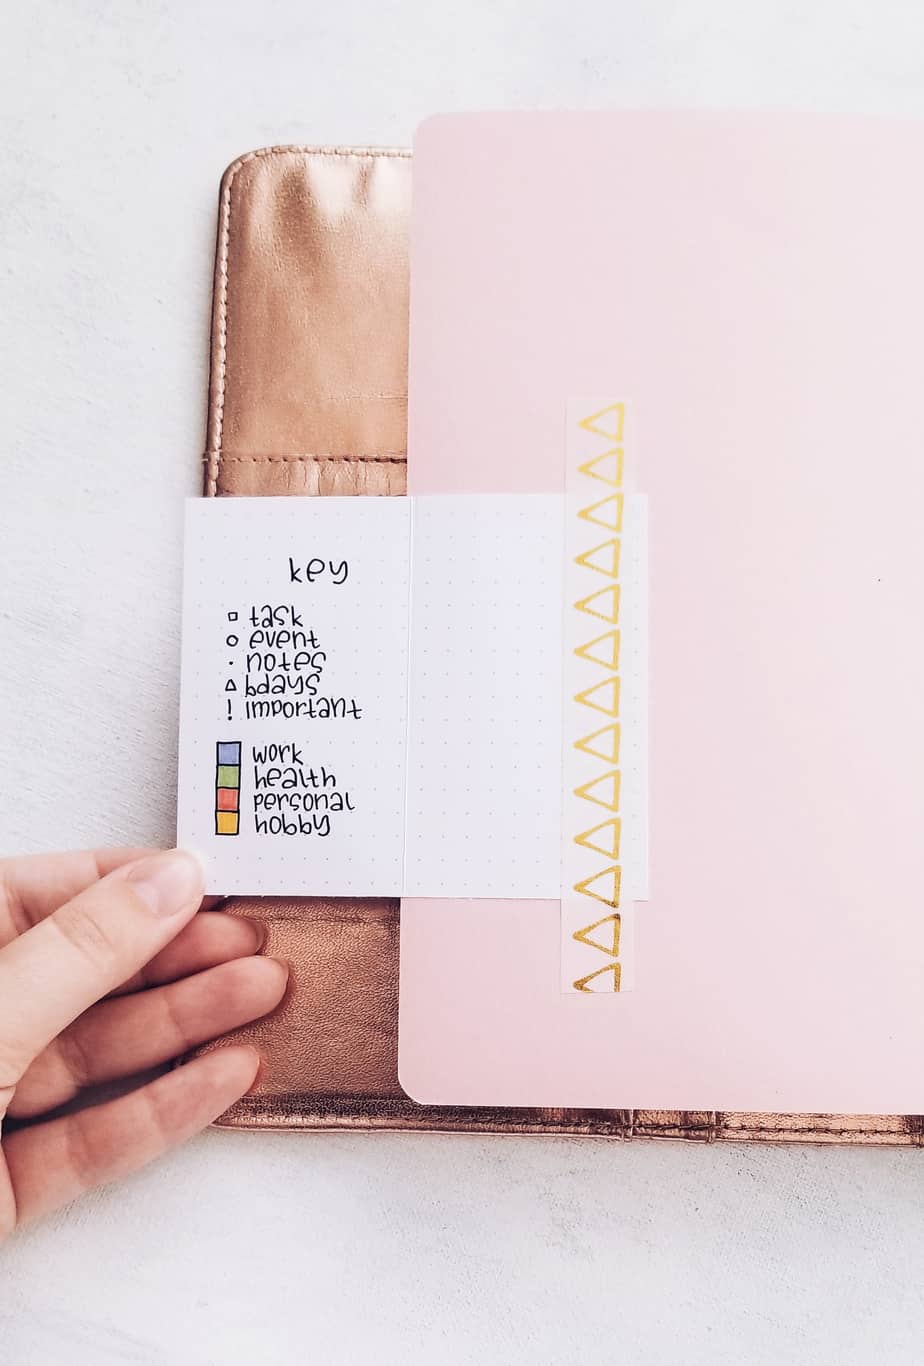 key
task
event
notes
bdays
! important
work
health
personal
hobby